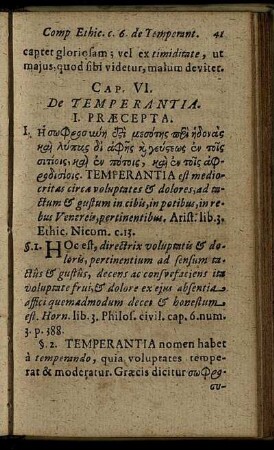 Comp Ethic. c. 6. de Temperant. 41
captet gloriosam; vel ex timiditate, ut
majus, quod sibi videtur, malum devitet.
CAP. VI.
De TEMPERANTIA.
I. PRÆCEPTA.
I. Η σωφροσύνη ἐστὶ μεσότης περὶ ἡδονὰς
καὶ λύπας δι ἁφῆς κ̀ γεύσεως ἐν τοῖς
σιτίοις, καὶ ἐν πότοις, καὶ ἐν τοῖς ἀφ-
ροδισίοις. TEMPERANTIA est medio-
critas circa voluptates & dolores, ad ta-
ctum & gustum in cibis, in potibus, in re-
bus Venereis, pertinentibus. Arist. lib. 3,
Ethic. Nicom. c. 13.
§. 1. HOc est, directrix voluptatis & do-
loris, pertinentium ad sensum ta-
ctûs & gustûs, decens ac consvefaciens ita
voluptate frui, & dolore ex ejus absentia
affici quemadmodum decet & honestum
est. Horn. lib. 3. Philos. civil. cap. 6. num.
3. p. 388.
§. 2. TEMPERANTIA nomen habet
à temperando, quia voluptates tempe-
rat & moderatur. Græcis dicitur σωφρο-
συ-